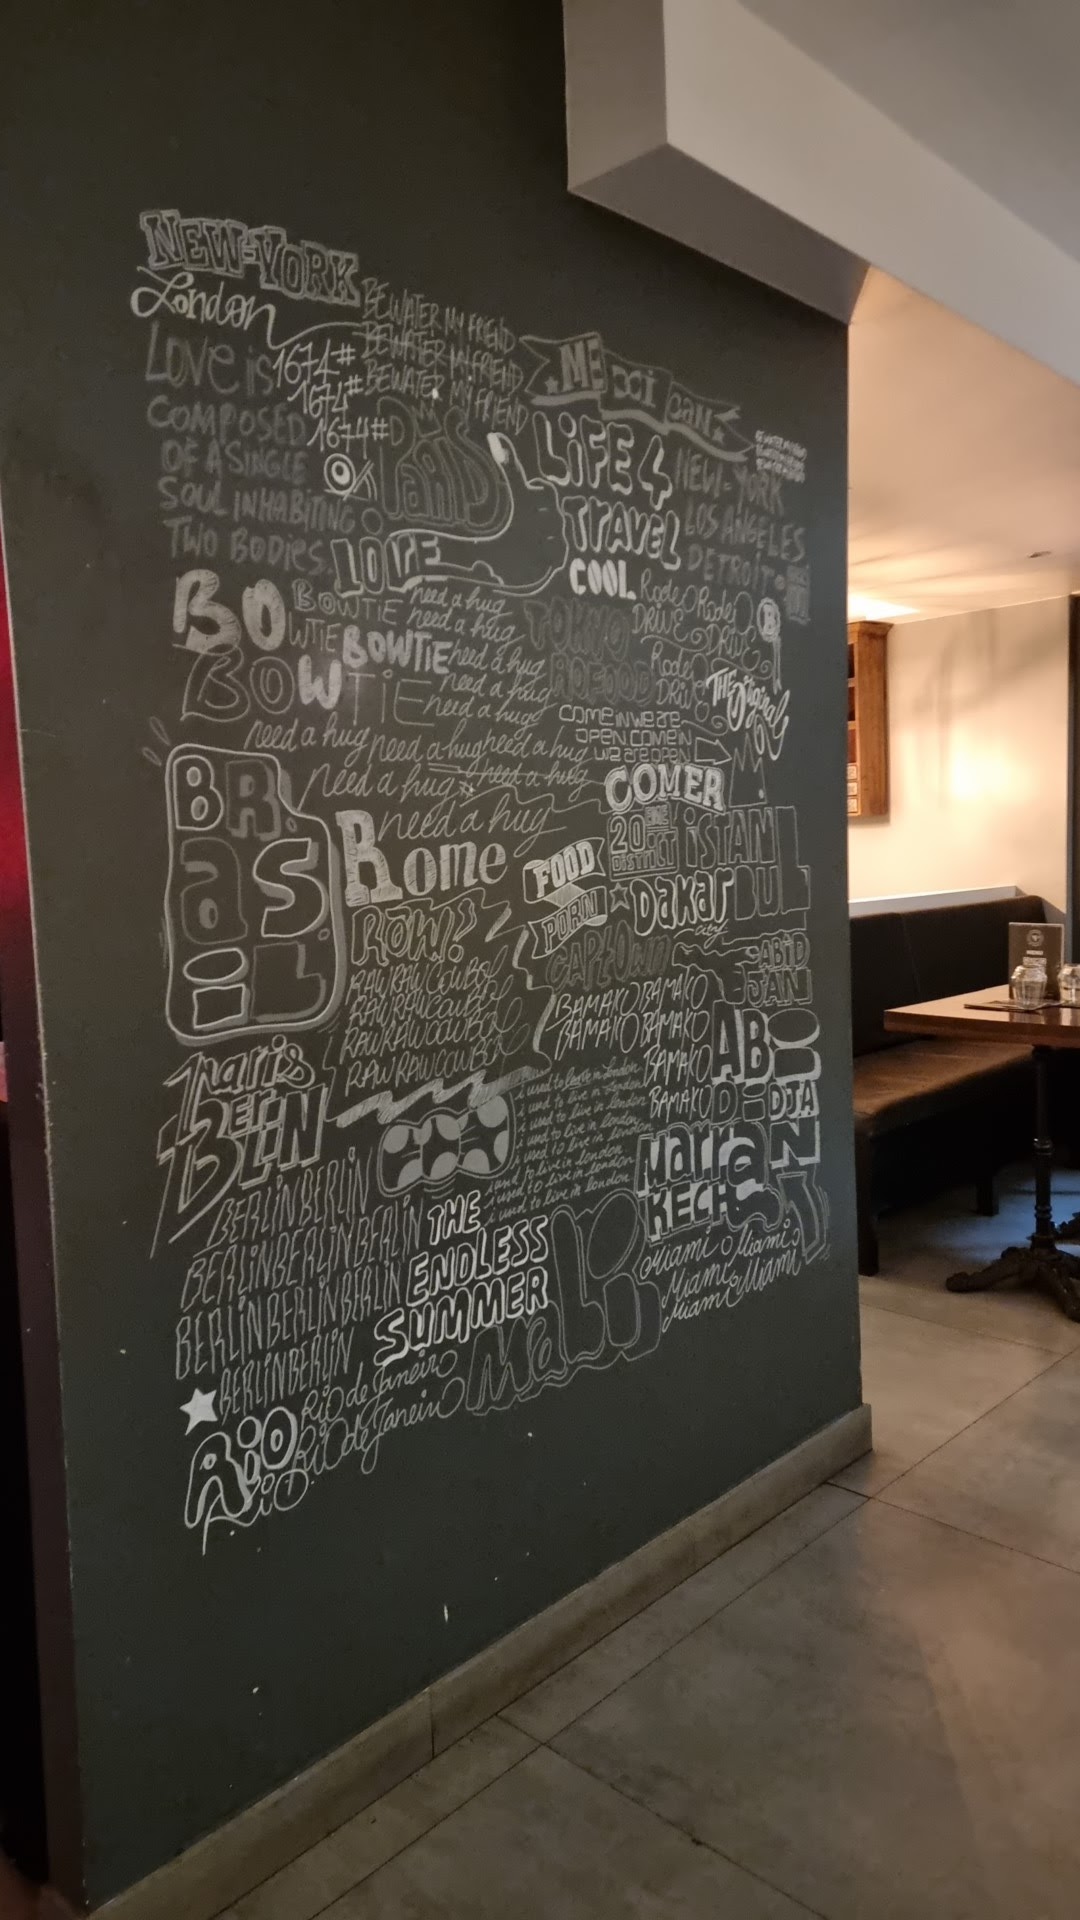 NEW-YORK
London
BE WATER MY FRIEND
BE WATER MY FRIEND
BE WATER MY FRIEND
LOVE iS
COMPOSED
OF A SINGLE
SOUL INHABITING
TWO BODIES
1674#
1674#
1674#
PARIS
LOVE
MEXXICAN
LIFE 4
TRAVEL
COOL
NEW-YORK
LOS ANGELES
DETROIT
BOWTIE
BOWTIE
BOWTIE
BOWTIE
need a hug
need a hug
need a hug
need a hug
need a hugg
need a hug need a hug need a hug
need a hug need a hug
need a hug
TOKYO
Rodeo
DRIVE
Rodeo
DRIVE
Rodeo
DRIVE
B
THE Original
COME IN WE ARE
OPEN COME IN
WE ARE OPEN
COMER
20
DISTRICT
iSTAN
BUL
BRaSiL
Rome
FOOD
PORN
Dakar
city
RAW!
RAWRAWCOWBOY
RAWRAWCOWBOY
RAWRAWCOWBOY
RAWRAWCOWBOY
CAPTOWN
ABiD
JAN
BAMAKO BAMAKO
BAMAKO BAMAKO
BAMAKO
BAMAKO
ABi
Di
DJA
N
Paris
BERLiN
BERLIN
i used to live in london
i used to live in london
i used to live in london
i used to live in london
i used to live in london
i used to live in london
i used to live in london
i used to live in london
Marra
KECH
BERLiNBERLiN
BERLiNBERLiNBERLiN
BERLiNBERLiNBERLiN
BERLiNBERLiN
THE
ENDLESS
SUMMER
MaLi
Miami Miami
Miami Miami
Miami
RiO
RiO
Rio de Janeiro
Rio de Janeiro